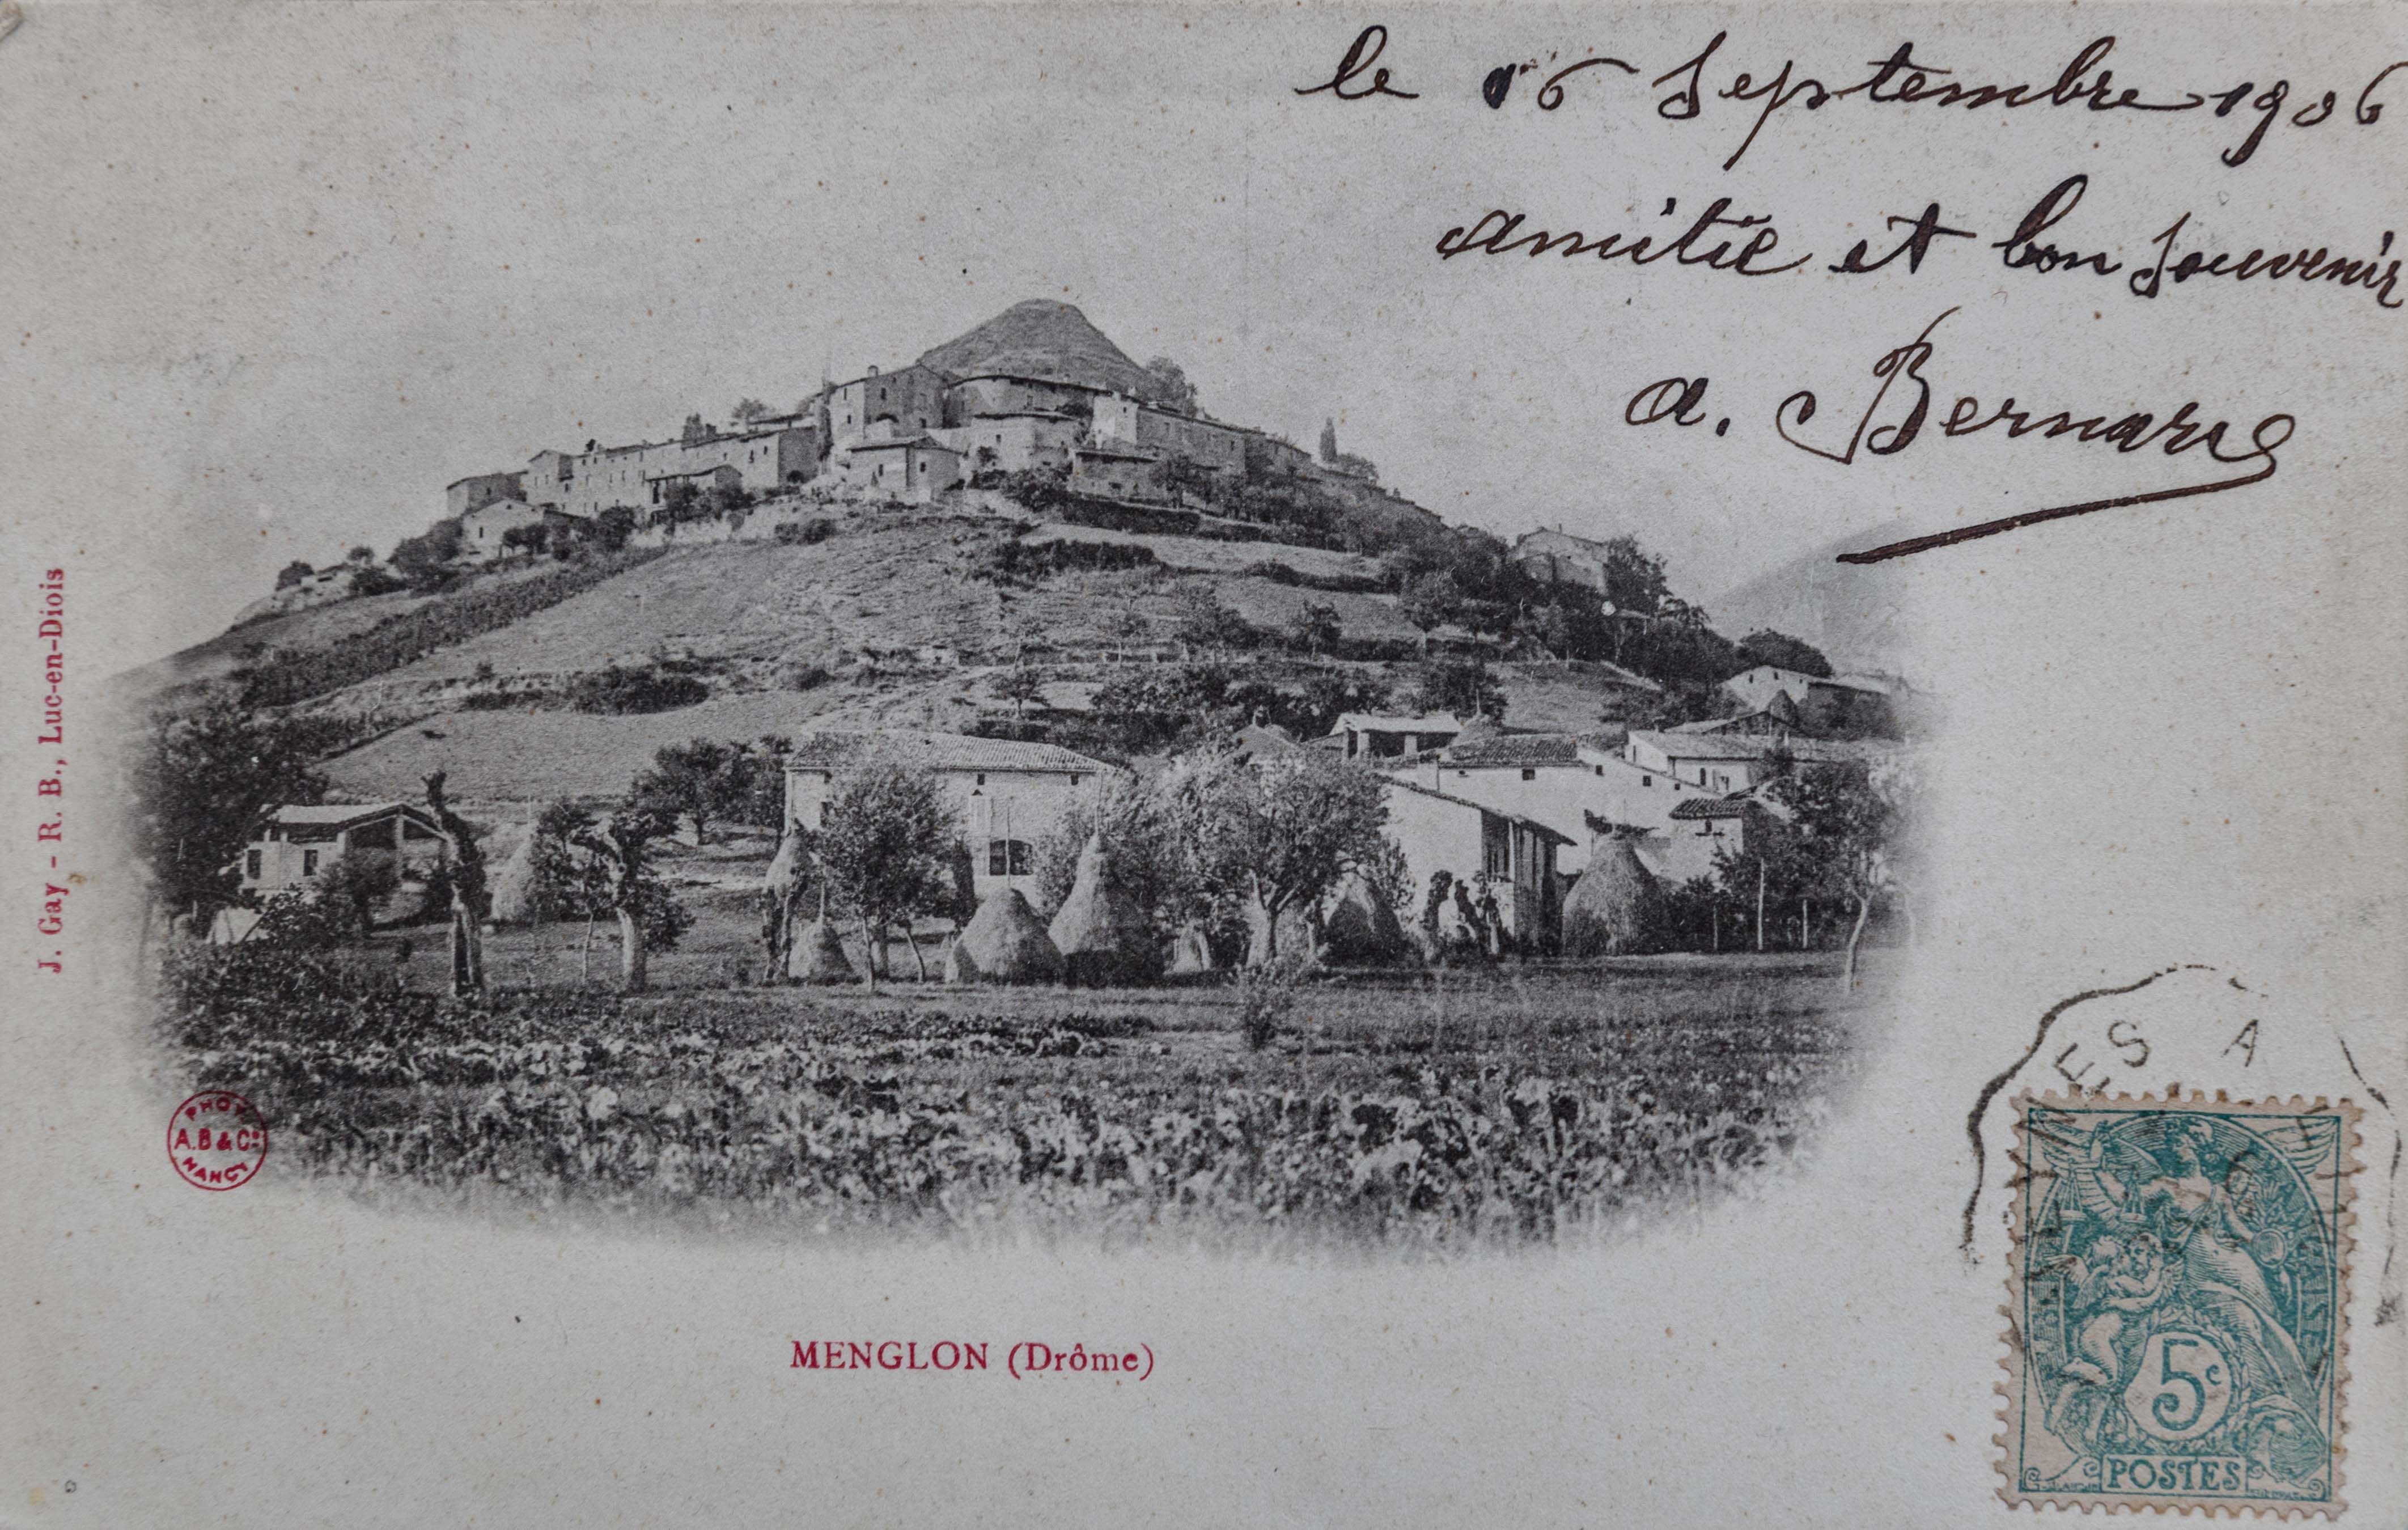 le 16 Septembre 1906
amitié et bon souvenir
a. Bernard
J. Gay - R. B., Luc-en-Diois
PHOT
A.B & Cie
NANCY
MENGLON (Drôme)
A
5c
POSTES